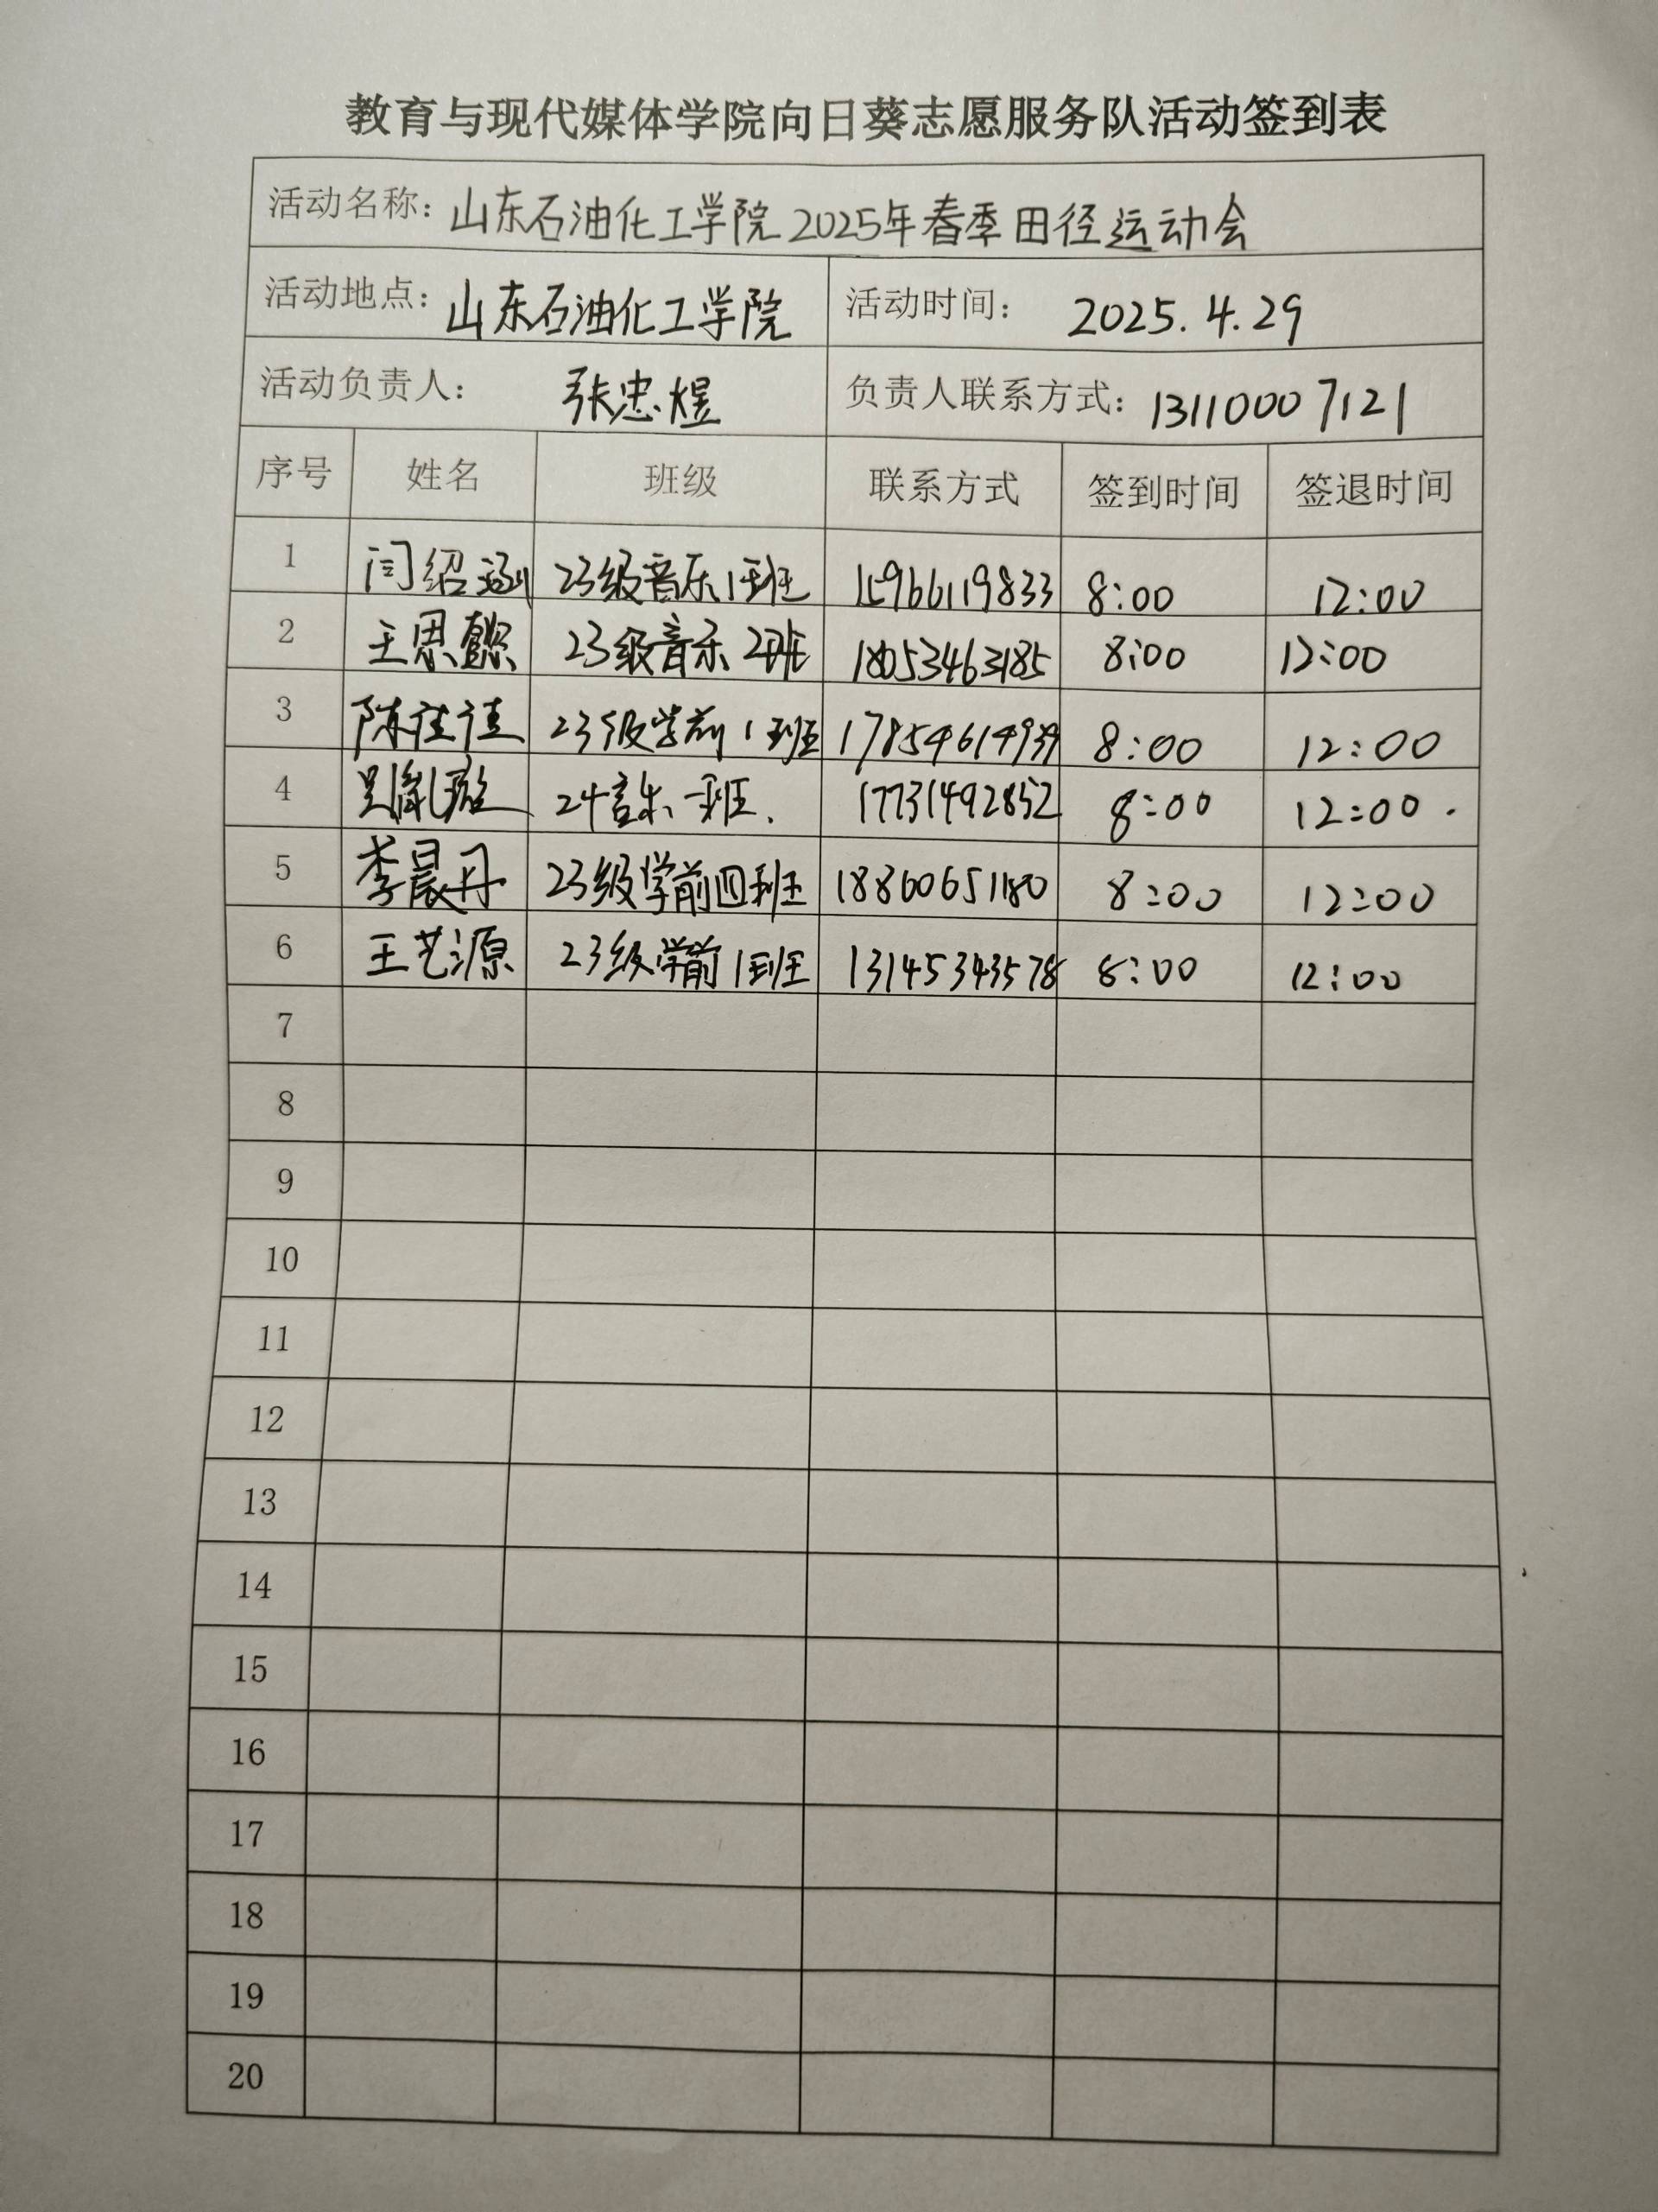 教育与现代媒体学院向日葵志愿服务队活动签到表
活动名称：山东石油化工学院2025年春季田径运动会
活动地点：山东石油化工学院 活动时间：2025.4.29
活动负责人：张忠煜 负责人联系方式：13110007121
序号 姓名 班级 联系方式 签到时间 签退时间
1 闫绍涵 23级音乐1班 15966119833 8:00 12:00
2 王思懿 23级音乐2班 18053463185 8:00 12:00
3 陈佳佳 23级学前1班 17854614939 8:00 12:00
4 吴胤璇 24音乐一班. 17731492852 8:00 12:00.
5 李晨丹 23级学前四班 18860651180 8:00 12:00
6 王艺源 23级学前1班 13145343578 8:00 12:00
7
8
9
10
11
12
13
14
15
16
17
18
19
20